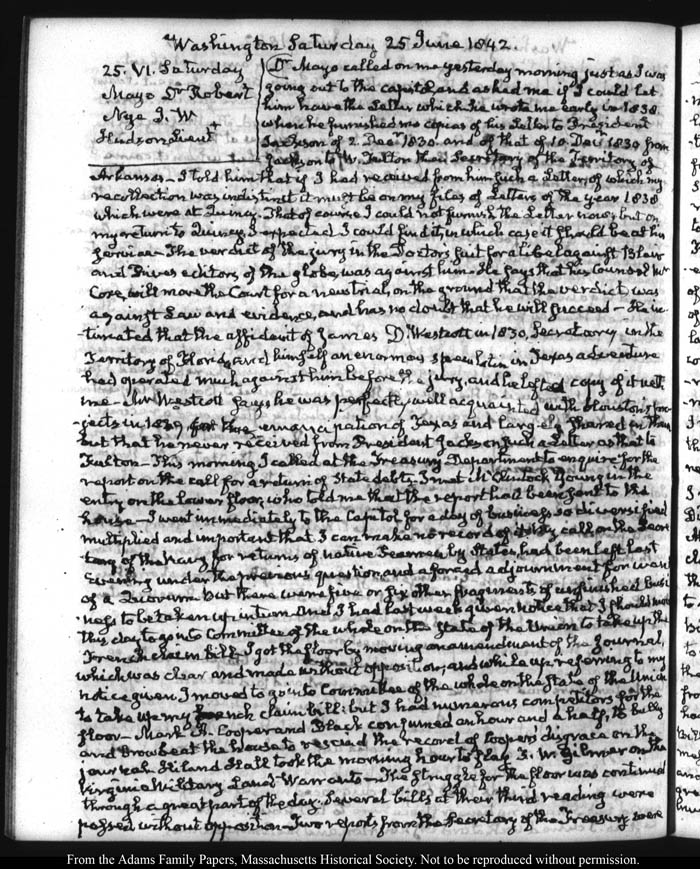 Washington Saturday 25 June 1842.
25. VI. Saturday
Mayo Dr Robert
Nye J. W
Hudson Lieut
Dr Mayo called on me yesterday morning just as I was
going out to the capitol, and asked me if I could let
him have the Letter which he wrote me early in 1838.
when he furnished me copies of his Letter to President
Jackson of 2. Decr 1830. and of that of 10 Decr 1830 from
Jackson to W. Fulton then Secretary of the Territory of
Arkansas—I told him that if I had received from him such a Letter, of which my
recollection was indistinct it must be on my files of Letters of the year 1838
which were at Quincy. That of course I could not furnish the Letter now; but on
my return to Quincy, I expected I could find it, in which case it should be at his
service—The verdict of the jury in the Doctor's suit for a libel against Blair
and Rives editors of the globe was against him—He says that his Counsel Mr
Coxe, will move the Court for a new trial, on the ground that the verdict was
against Law and evidence, and has no doubt that he will succeed—He in-
timated that the affidavit of James D. Westcott in 1830, Secretary in the
Territory of Florida, and himself an enormous speculator in Texas adventure
had operated much against him before the jury, and he left a copy of it with
me—Mr Westcott says he was perfectly well acquainted with Houston's pro-
jects in 1829 for the emancipation of Texas and largely shared in them
but that he never received from President Jackson such a Letter as that to
Fulton—This morning I called at the Treasury Department to enquire for the
report on the call for a return of State debts. I met McClintock Young in the
entry on the lower floor, who told me that the report had been sent to the
house—I went immediately to the Capitol for a day of business so diversified
multiplied and important that I can make no record of it. My call on the Secre-
tary of the Navy for returns of native Seamen by States, had been left last
evening under the previous question, and a forced adjournment for want
of a Quorum but there were five or six other fragments of unfinished busi-
ness to be taken up in turn. And I had last week given notice that I should move
this day to go into Committee of the whole on the State of the Union to take up the
French claim bill. I got the floor by moving an amendment of the Journal,
which was clear and made without opposition, and while up, referring to my
notice given I moved to go into Committee of the whole on the State of the Union
to take up my French claim bill: but I had numerous competitors for the
floor—Mark A. Cooper and Black consumed an hour and a half, to bully
and browbeat the house to rescind the record of Cooper's disgrace on the
journal. Hiland Hall took the morning hour to flay T. W. Gilmer on the
Virginia Military Land Warrants—The struggle for the floor was continued
through a great part of the day. Several bills at their third reading were
passed without opposition—Two reports from the Secretary of the Treasury were
From the Adams Family Papers, Massachusetts Historical Society. Not to be reproduced without permission.